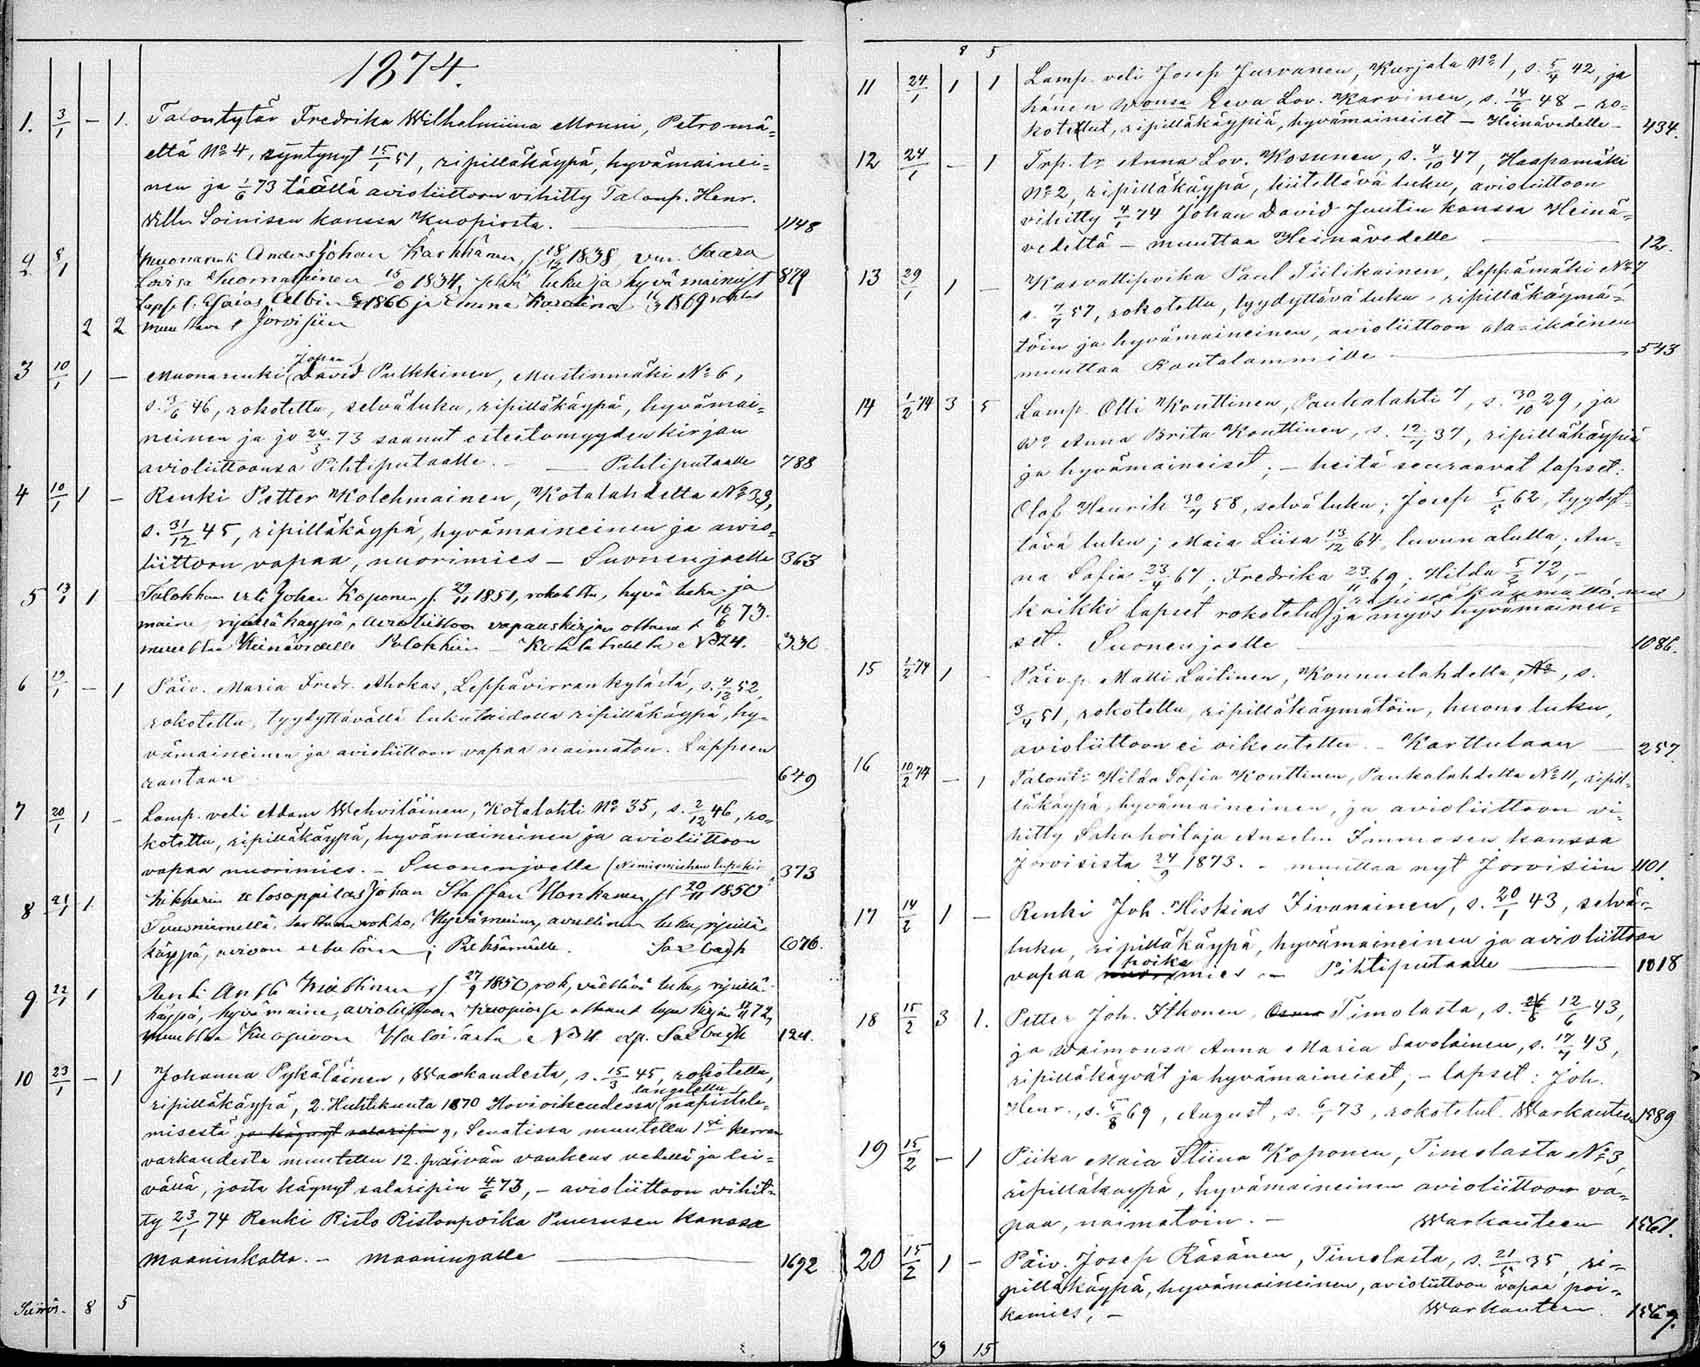 1874.
1. 3/1 — 1. Talontytär Fredrika Wilhelmiina Monni, Petromä-
eltä No 4, syntynyt 15/1 51, ripilläkäypä, hyvämainei-
nen ja 1/6 73 täällä avioliittoon vihitty Talonp. Henr.
Will. Soinisen kanssa Kuopiosta. 1148
2 8/1 Muonarenk Anders Johan Karhhänen, f 18/12 1838 vm. Saara
Lovisa Suomalainen 1834, hyvä mainyst 879
laps. t. Esaias Albin 1866 ja Emma Karolina 1869
2 2 muuttava Jorvisiin
3 10/1 1 — Muonarenki Johan David Pulkkinen, Mustinmäki No 6,
s. 3/6 46, rokotettu, selväluku, ripilläkäypä, hyvämai-
neinen ja jo 24/3 73 saanut esteettomyyden kirjan
avioliittoonsa Pihtiputaalle. — Pihtiputaalle 788
4 10/1 1 — Renki Petter Kolehmainen, Kotalahdelta No 33,
s. 31/12 45, ripilläkäypä, hyvämaineinen ja avio-
liittoon vapaa, nuorimies — Suonenjoelle 363
5 13/1 1 Talokkaan veli Johan Koponen, f 29/11 1851, rokotettu, hyvä luku ja
maine, ripillä käypä, avioliittoon vapauskirjan ottanut 16/6 73.
muuttaa Heinävedelle — Kotalahdelta No 24. 330
6 19/1 — 1 Päiv. Maria Fredr. Ahokas, Leppävirran kylästä, s. 4/12 52,
rokotettu, tyydyttävällä lukutaidolla ripilläkäypä, hy-
vämaineinen ja avioliittoon vapaa naimaton. Lappeen
rantaan 649
7 20/1 1 — Lamp. veli Adam Wehviläinen, Kotalahti No 35, s. 2/12 46, ro-
kotettu, ripilläkäypä, hyvämaineinen ja avioliittoon
vapaa nuorimies. — Suonenjoelle (Nimismiehen 373
8 21/1 1 Johan Staffan Honkanen, f 20/11 1850
luku, ripillä-
käypä, Pieksämälle. Salbergh 676.
9 22/1 1 Renki f 27/9 1850, rok, välttävä luku, ripillä-
käypä, hyvä maine, avioliittoon Kuopiossa ottanut
muuttaa Kuopioon No 4. Salbergh 124.
10 23/1 — 1 Johanna Pykäläinen, Warkaudesta, s. 15/3 45, rokotettu,
ripilläkäypä, 2. Huhtikuuta 1870 Hovioikeudessa langetettu napistele-
misestä ja käynyt salaripin y, Senatissa muutettu 1:n kerran
varkaudesta muutettu 12. päivän vankeus vedellä ja lei-
vällä, josta käynyt salaripin 4/6 73, — avioliittoon vihit-
ty 23/1 74 Renki Risto Ristonpoika Puurusen kanssa
Maaninkalta. — Maaningalle 1692
Siirros. 8 5
8 5
11 24/1 1 1 Lamp. veli Josep Jurvanen, Kurjala No 1, s. 5/4 42, ja
hänen wonsa Eeva Lov. Karvinen, s. 14/6 48 — ro-
kotetut, ripilläkäypiä, hyvämaineiset — Heinävedelle — 434.
12 24/1 — 1 Trp. tr Anna Lov. Kosunen, s. 4/10 47, Haapamäki
No 2, ripilläkäypä, kiitettävä luku, avioliittoon
vihitty 4/1 74 Johan David Juutin kanssa Heinä-
vedeltä — muuttaa Heinävedelle 12.
13 29/1 1 — Kasvattipoika Paul Tiilikainen, Leppämäki No 7
s. 7/7 57, rokotettu, tyydyttävä luku, ripilläkäymä-
töin ja hyvämaineinen, avioliittoon ala-ikäinen
muuttaa Rautalammille 543
14 1/2 74 3 5 Lamp. Olli Konttinen, Paukalahti 7, s. 30/10 29, ja
Wo Anna Brita Konttinen, s. 12/1 37, ripilläkäypiä
ja hyvämaineiset; — heitä seuraavat lapset:
Olof Henrik 30/4 58, selvä luku; Josep 5/5 62, tyydyt-
tävä luku; Maia Liisa 13/12 64, luvun alulla; An-
na Sofia 23/4 67; Fredrika 23/11 69; Hilda 5/2 72, —
kaikki lapset rokotetut, ripillä käymättömät ja myös hyvämainei-
set. Suonenjoelle 1086.
15 1/2 74 1 — Päivp. Matti Laitinen, Konnuslahdelta No, s.
3/4 51, rokotettu, ripilläkäymätöin, huono luku,
avioliittoon ei oikeutettu. — Karttulaan 257.
16 10/2 74 — 1 Talontr Hilda Sofia Konttinen, Paukalahdelta No 11, ripil-
läkäypä, hyvämaineinen, ja avioliittoon vi-
hitty Anselm Immosen kanssa
Jorvisista 24/9 1873. — muuttaa nyt Jorvisiin 1101.
17 14/2 1 — Renki Joh. Hiskias Iivanainen, s. 20/1 43, selvä-
luku, ripilläkäypä, hyvämaineinen ja avioliittoon
vapaa poika mies — Pihtiputaalle 1018
18 15/2 3 1. Petter Joh. Itkonen, Timolasta, s. 12/6 43,
ja waimonsa Anna Maria Savolainen, s. 17/7 43,
ripilläkäyvät ja hyvämaineiset, — lapset: Joh.
Henr., s. 5/8 69, August, s. 6/1 73, rokotetut. Warkauteen 1589
19 15/2 — 1 Piika Maia Stiina Koponen, Timolasta No 3,
ripilläkäypä, hyvämaineinen avioliittoon va-
paa, naimatoin. — Warkauteen 1561.
20 15/2 1 — Päiv. Josep Räsänen, Timolasta, s. 21/5 35, ri-
pilläkäypä, hyvämaineinen, avioliittoon vapaa poi-
kamies, — Warkauteen 1567.
19 15